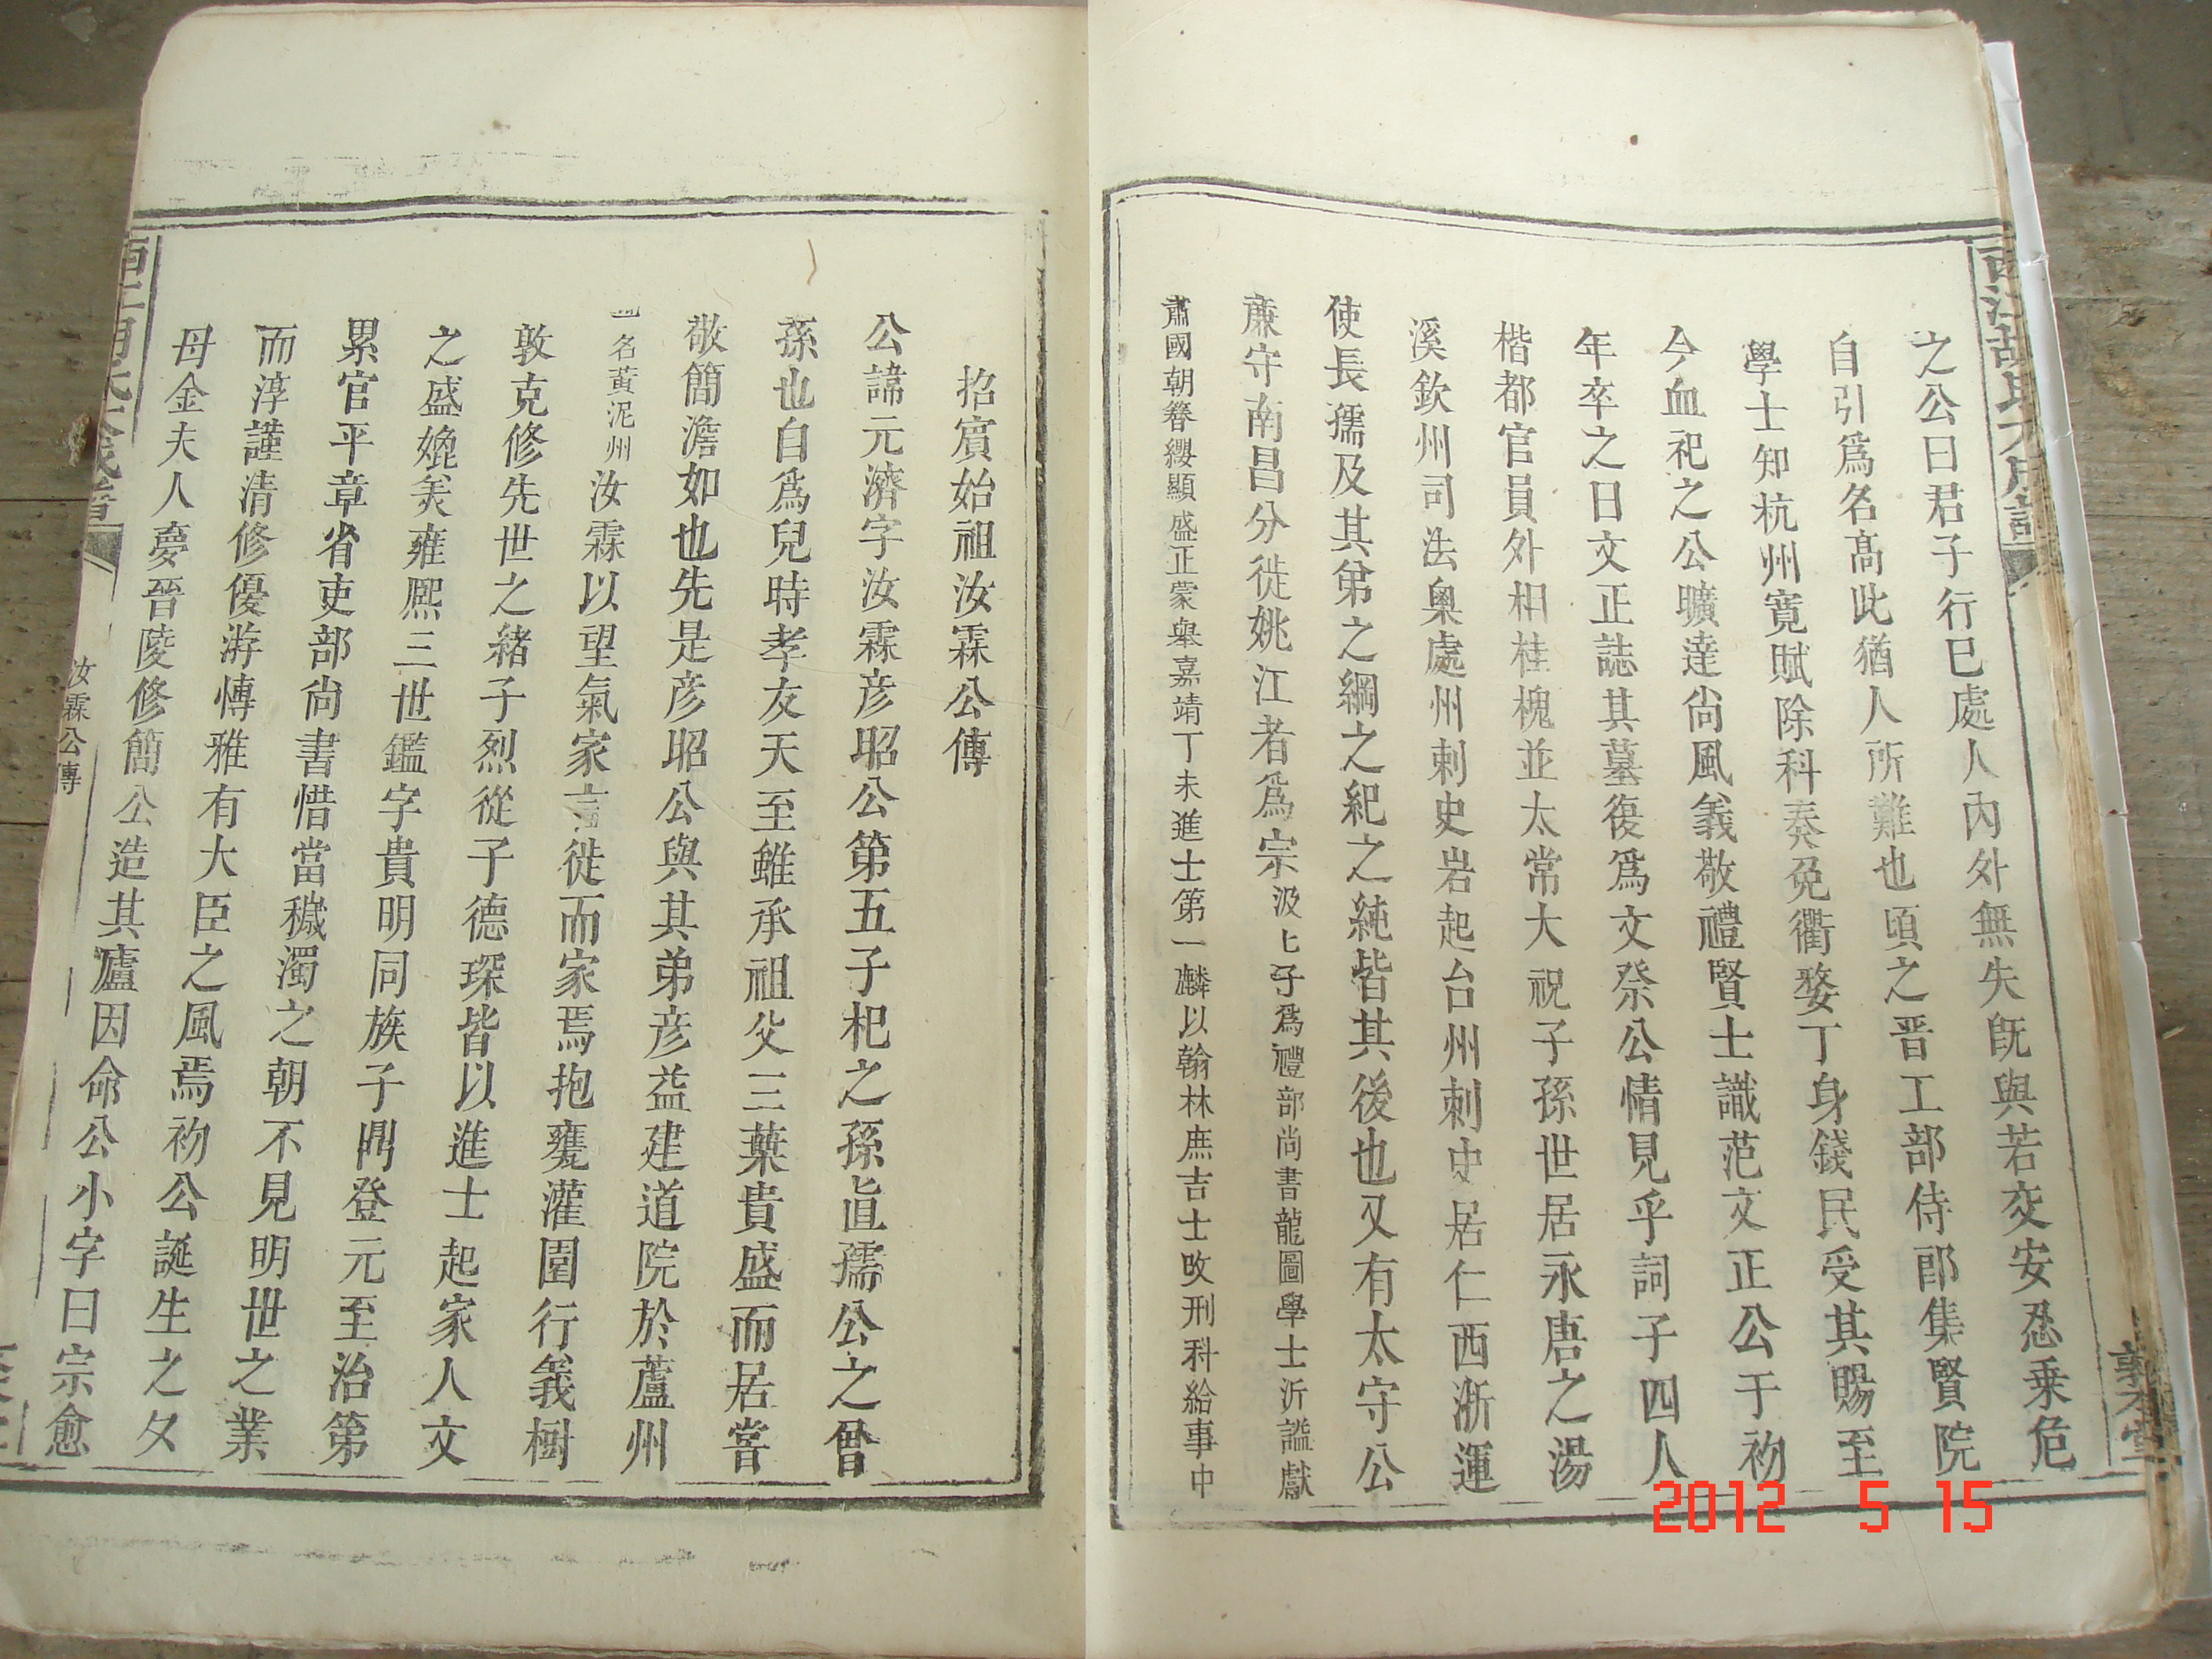 之公曰君子行巳處人內外無失旣與若交安忍乗危
自引爲名高此猶人所難也頃之晋工部侍郎集賢院
學士知杭州寛賦除科奏免衢婺丁身錢民受其賜至
今血祀之公曠達尙風義敬禮賢士識范文正公于初
年卒之日文正誌其墓復爲文祭公情見乎詞子四人
楷都官員外相桂槐並太常大祝子孫世居永唐之湯
溪欽州司法奧處州刺史岩起台州刺史居仁西浙運
使長孺及其弟之綱之紀之純皆其後也又有太守公
廉守南昌分徙姚江者爲宗汲上子爲禮部尙書龍圖學士沂謚獻
肅國朝簪纓顯盛正蒙舉嘉靖丁未進士第一麟以翰林庶吉士改刑科給事中
敦本堂
招賓始祖汝霖公傳
公諱元濟字汝霖彦昭公第五子杞之孫直孺公之曾
孫也自爲兒時孝友天至雖承祖父三葉貴盛而居嘗
敬簡澹如也先是彦昭公與其弟彦益建道院於蘆州
一名黃泥州汝霖以望氣家言徙而家焉抱甕灌園行義樹
敦克修先世之緒子烈從子德琛皆以進士起家人文
之盛媲美雍熈三世鑑字貴明同族子鼎登元至治第
累官平章省吏部尙書惜當穢濁之朝不見明世之業
而淳謹清修優游慱雅有大臣之風焉初公誕生之夕
母金夫人夢晉陵修簡公造其廬因命公小字曰宗愈
汝霖公傳